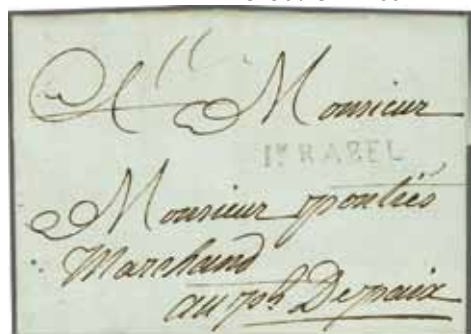 A Monsieur
Iᴺ RABEL
Monsieur pontiés
Marchand
au ph Depaix